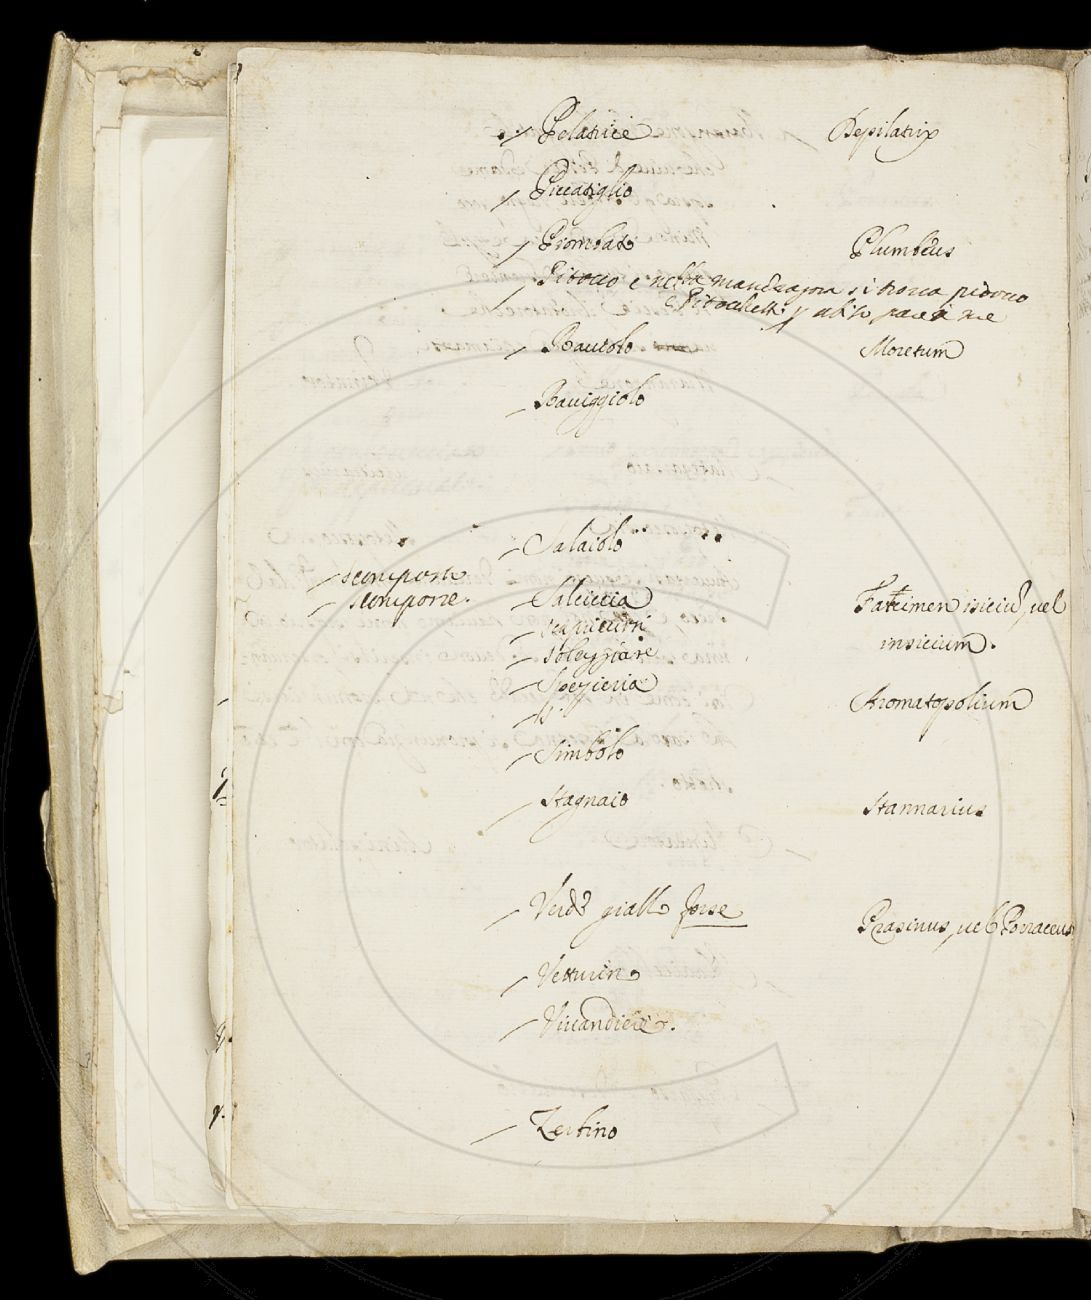 Pelatrice Depilatrix
Piccatiglio
Piombato Plumbeus
Pitocco e nella mandragora si trova pidoco
e Pitochetti p abito pare à me
Rautolo Moretum
Raviggiolo
Salaiolo
scomporti
scomporre.
Salciccia Fartimen isiciũ, vel
insicium.
scapricciri
soleggiare
Spezieria Aromatopolium
Simbolo
stagnaio stannarius
Verde giallo forse Prasinus, vel Porraceus
Vetturino
Vivandiere.
Zerbino